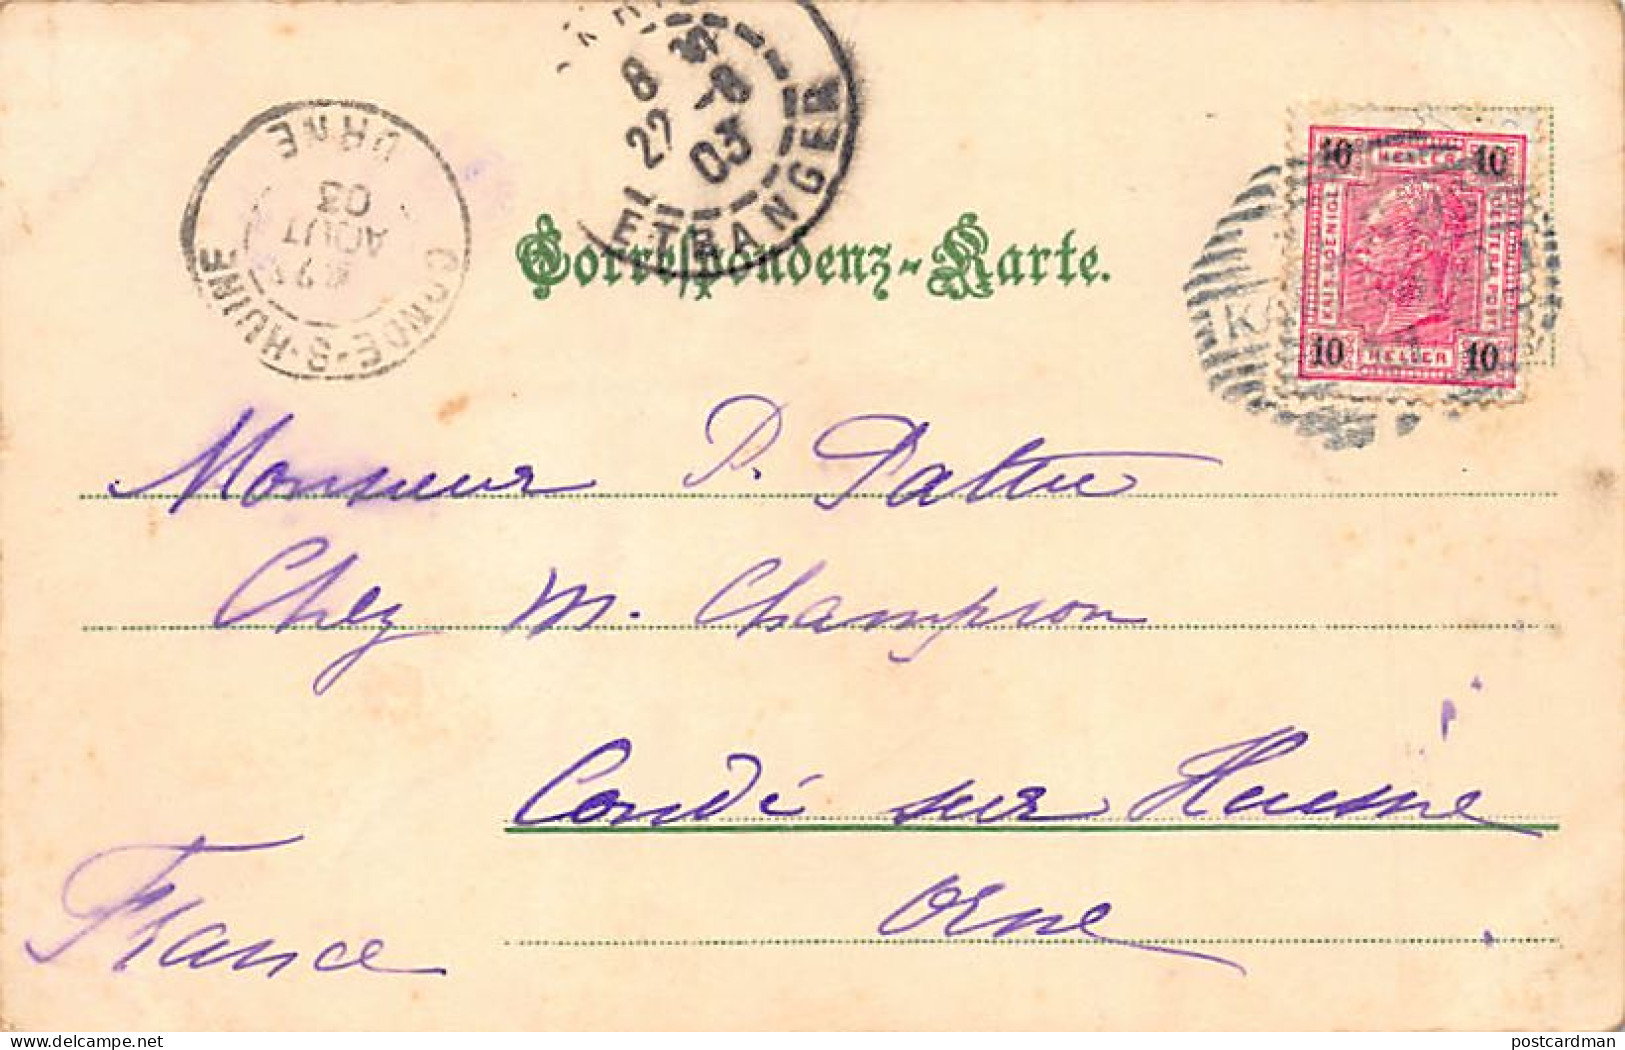 8 22 -8 03
ETRANGER
ORNE
AOUT
03
CONDE-S-HUINE
Correspondenz-Karte.
10 HELLER 10
KAIS. KOENIGL. OESTERR. POST
10 HELLER 10
K
Monsieur P. Pattu
Chez M. Champion
Condé sur Huisne
Orne
France
postcardman